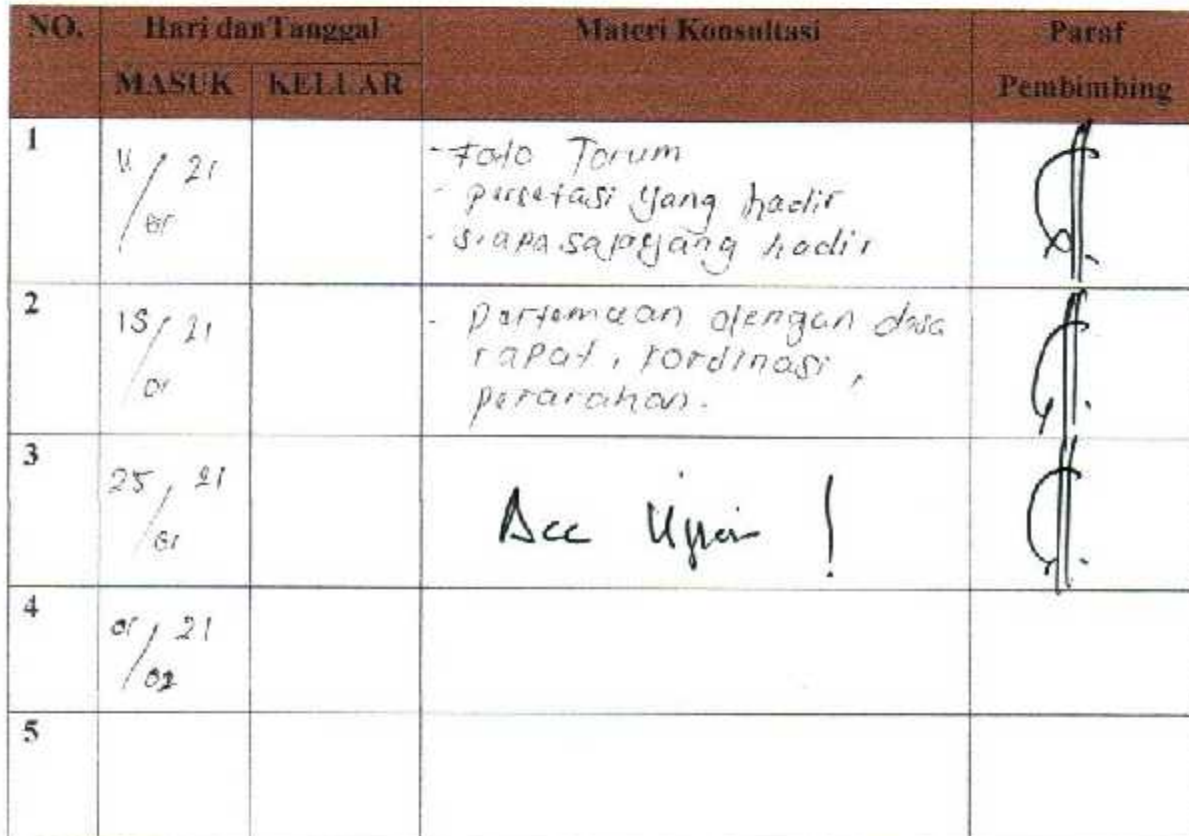 NO. Hari dan Tanggal Materi Konsultasi Paraf
MASUK KELUAR Pembimbing
1 11/01 21 - Foto Forum
- persetasi yang hadir
- siapa saja yang hadir
2 15/01 21 - pertemuan dengan desa
rapat, kordinasi,
perarahan.
3 25/01 21 Acc Ujian !
4 01/02 21
5